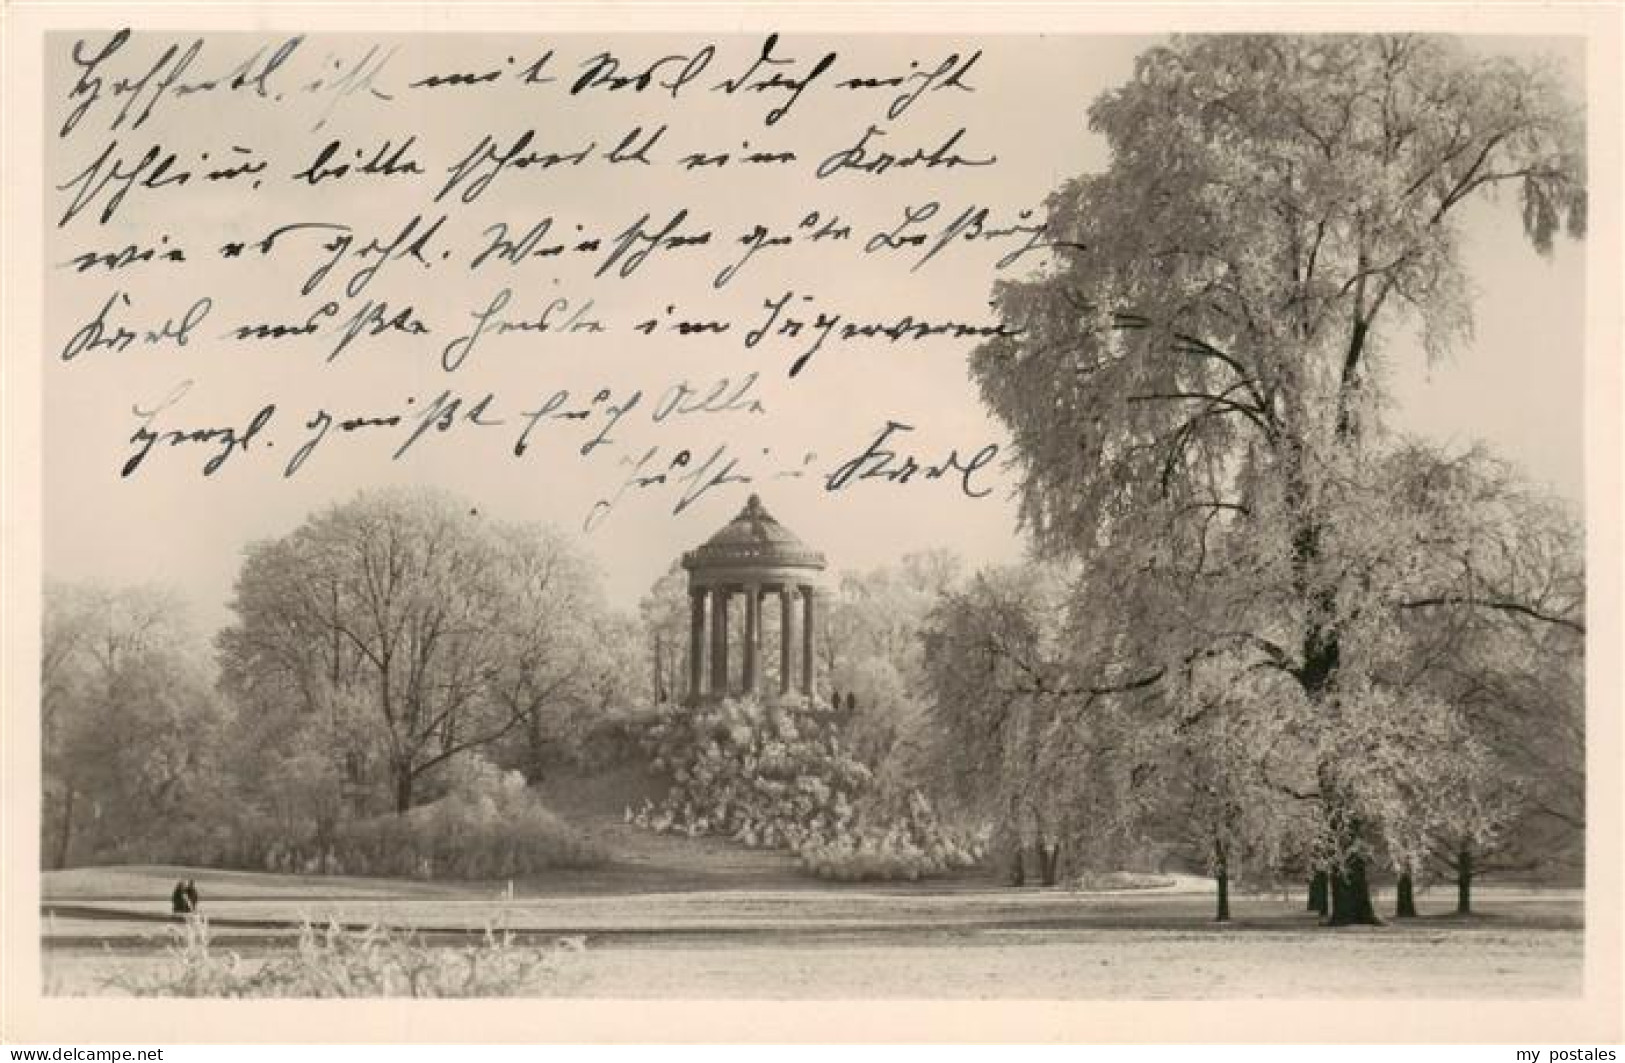 Hoffentl. ist mit Rosl doch nicht
schlim, bitte schreibt eine Karte
wie es geht. Wünschen gute Besserg
Karl musste heute im Jägerverein
Herzl. grüßt Euch Alle
u Karl
www.delcampe.net
my_postales